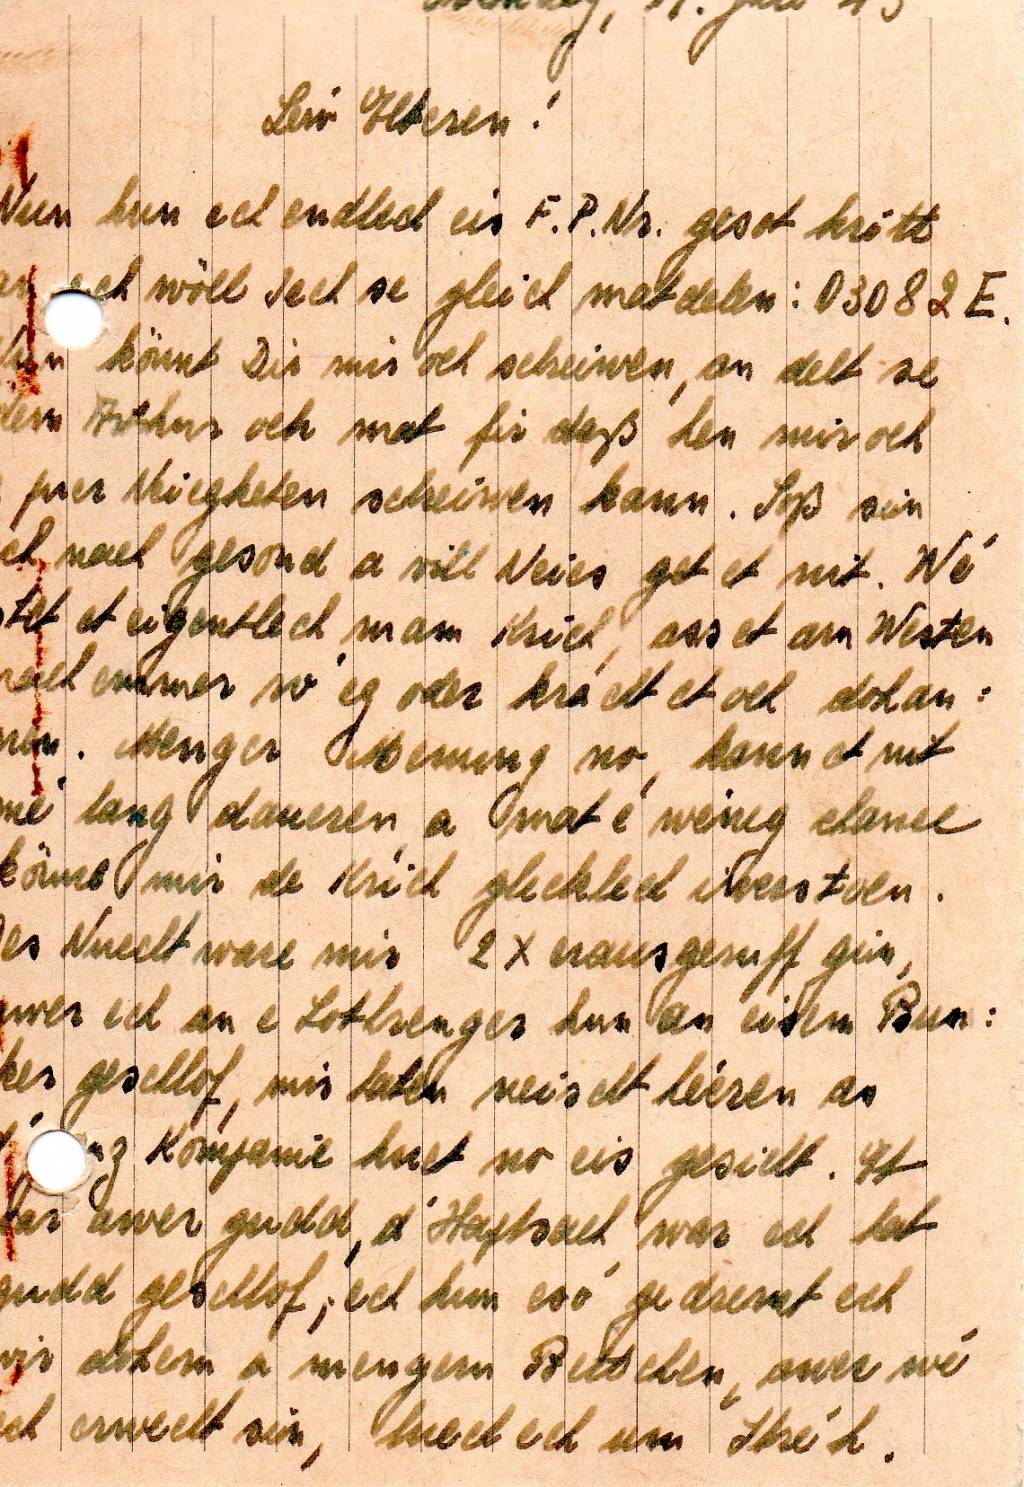 Leiw Elteren!
Nun hun ech endlech eis F.P.Nr. gesot kritt
an ech wöll Iech se gleich matdelen: 03082 E.
könnt Dir mir och schreiwen, an delt se
dem Arthur och mat fir daß hen mir och
puer Neiegketen schreiwen kann. Soß sin
ech nach gesond a vill Neies get et nit. Wé
stet et eigentlech mam Krich, ass et am Westen
nach emmer roëg oder krächt et och dohan:
nen. Menger Menung no, kann et nit
mé lang daueren, a mat é wéineg chance
könne mir de Krich glecklech iwerstoen.
Des Nuecht ware mir 2 X erausgeruff gin,
awer ech an e Lothrenger hun an eisem Bun:
ker geschlof, mir haten neischt héieren an
Kompanie huet no eis gesicht. Et
war awer gudd, d'Haptsach war ech hat
gudd geschlof, ech hun esó gedremt ech
wir dohem a mengem Bettchen, awer wé
ech erwecht sin, luech ech um Stréh.